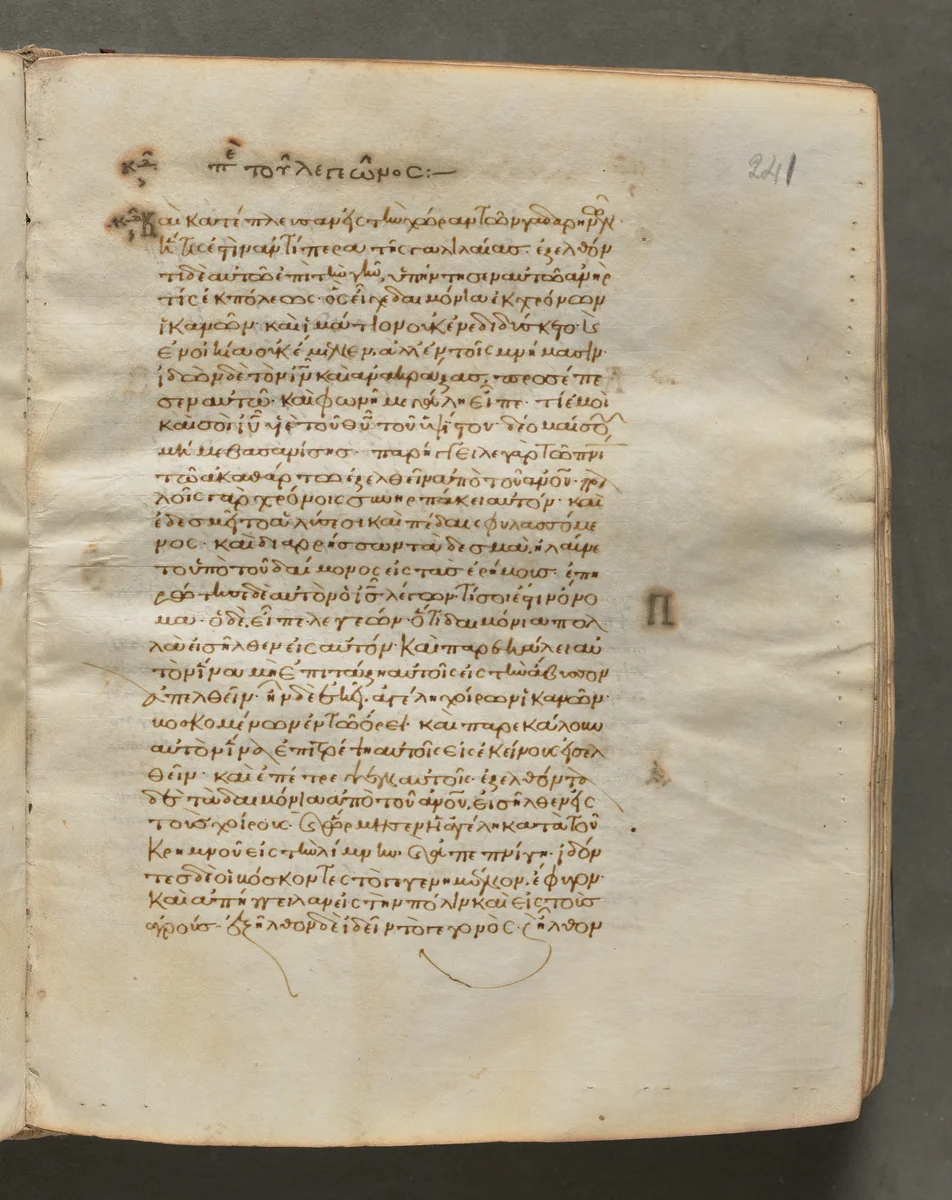 κδ πε τοῦ λεγεῶνος:— 241
Καὶ κατέπλευσαν εἰς τὴν χώραν τῶν γαδαρηνῶν·
ἥτις ἐστὶν ἀντίπερα τῆς γαλιλαίας· ἐξελθόν
τι δὲ αὐτῶ ἐπὶ τὴν γῆν, ὑπήντησεν αὐτῶ ἀνήρ
τίς ἐκ πόλεως· ὃς εἶχε δαιμόνια ἐκ χρόνων
ἱκανῶν· καὶ ἱμάτιον οὐκ ἐνεδιδύσκετο· καὶ
ἐν οἰκία οὐκ ἔμενεν, ἀλλ' ἐν τοῖς μνήμασιν·
ἰδὼν δὲ τὸν ιν καὶ ἀνακράξας, προσέπε
σεν αὐτῶ· καὶ φωνῆ μεγάλη εἶπε· τί ἐμοὶ
καὶ σοὶ ιυ υἱὲ τοῦ θυ τοῦ ὑψίστου· δέομαί σου
μή με βασανίσης· παρήγγειλε γὰρ τῶ πνι
τῶ ἀκαθάρτω ἐξελθεῖν ἀπὸ τοῦ ανου· πολ
λοῖς γὰρ χρόνοις συνηρπάκει αὐτόν· καὶ
ἐδεσμεῖτο ἁλύσεσι καὶ πέδαις φυλασσόμε
νος· καὶ διαρρήσσων τὰ δεσμὰ, ἠλαύνε
το ὑπὸ τοῦ δαίμονος εἰς τὰς ἐρήμους· ἐπη
ρώτησε δὲ αὐτὸν ὁ ις λέγων· τί σοι ἐστὶν ὄνο
μα· ὁ δὲ, εἶπε· λεγεών· ὅτι δαιμόνια πολ
λὰ εἰσῆλθεν εἰς αὐτόν· Καὶ παρεκάλει αὐ
τὸν ἵνα μὴ ἐπιτάξη αὐτοῖς εἰς τὴν ἄβυσσον
ἀπελθεῖν· ἦν δὲ ἐκεῖ, ἀγέλη χοίρων ἱκανῶν·
βοσκομένων ἐν τῶ ὄρει· καὶ παρεκάλουν
αὐτὸν ἵνα ἐπιτρέψη αὐτοῖς εἰς ἐκείνους εἰσελ
θεῖν· καὶ ἐπέτρεψεν αὐτοῖς· ἐξελθόντα
δὲ τὰ δαιμόνια ἀπὸ τοῦ ανου, εἰσῆλθεν εἰς
τοὺς χοίρους· καὶ ὥρμησεν ἡ ἀγέλη κατὰ τοῦ
κρημνοῦ εἰς τὴν λίμνην· καὶ ἀπεπνίγη· ἰδόν
τες δὲ οἱ βόσκοντες τὸ γεγενημένον, ἔφυγον·
Καὶ ἀπήγγειλαν εἰς τὴν πόλιν καὶ εἰς τοὺς
ἀγρούς· ἐξῆλθον δὲ ἰδεῖν τὸ γεγονὸς· καὶ ἦλθον